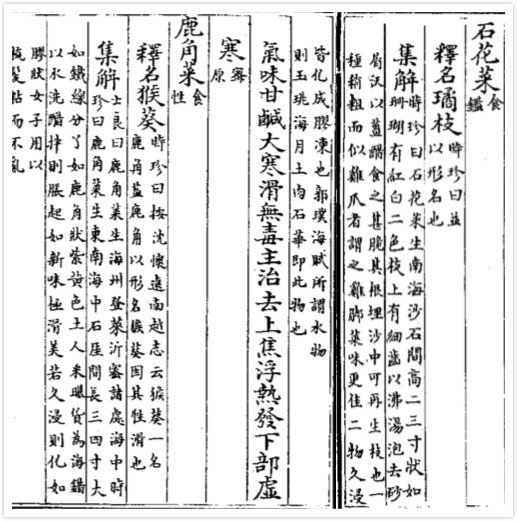 石花菜食鑑
釋名璚枝時珍曰並
以形名也
集解時珍曰石花菜生南海沙石間高二三寸狀如
珊瑚有紅白二色枝上有細齒以沸湯泡去砂
屑沃以薑醋食之甚脆其根埋沙中可再生枝也一
種稍粗而似雞爪者謂之雞脚菜味更佳二物久浸
皆化成膠凍也郭璞海賦所謂水物
則玉珧海月土肉石華即此物也
氣味甘鹹大寒滑無毒主治去上焦浮熱發下部虛
寒寗原
鹿角菜食性
釋名猴葵時珍曰按沈懷遠南越志云猴葵一名
鹿角蓋鹿角以形名猴葵因其性滑也
集解士良曰鹿角菜生海州登萊沂密諸處海中時
珍曰鹿角菜生東南海中石厓間長三四寸大
如鐵線分丫如鹿角狀紫黃色土人采曝貨為海錯
以水洗醋拌則脹起如新味極滑美若久浸則化如
膠狀女子用以
梳髮粘而不亂